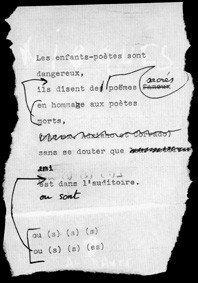 Les enfants-poètes sont
dangereux,
ils disent des poèmes fameux sacrés
en hommage aux poètes
morts,
sans se douter que
ami
est dans l'auditoire.
ou sont
ou (a) (a) (s)
ou (s) (s) (es)